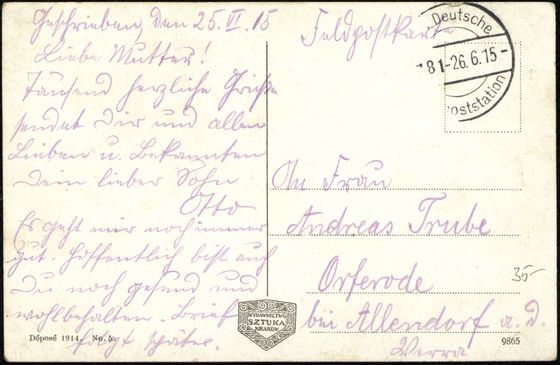 Geschrieben, den 25. VI. 15
Liebe Mutter!
Tausend herzliche Grüße
sendet Dir und allen
Lieben u. Bekannten
Dein lieber Sohn
Otto
Es geht mir noch immer
gut. Hoffentlich bist auch
Du noch gesund und
wohlbehalten. Brief
folgt später.
Feldpostkarte
Deutsche
81-26.6.15-
poststation
An Frau
Andreas Trube
Orferode
bei Allendorf a. d.
Werra
35-
WYDAWNICTWO
SZTUKA
KRAKÓW
Déposé 1914. No. 5.
9865